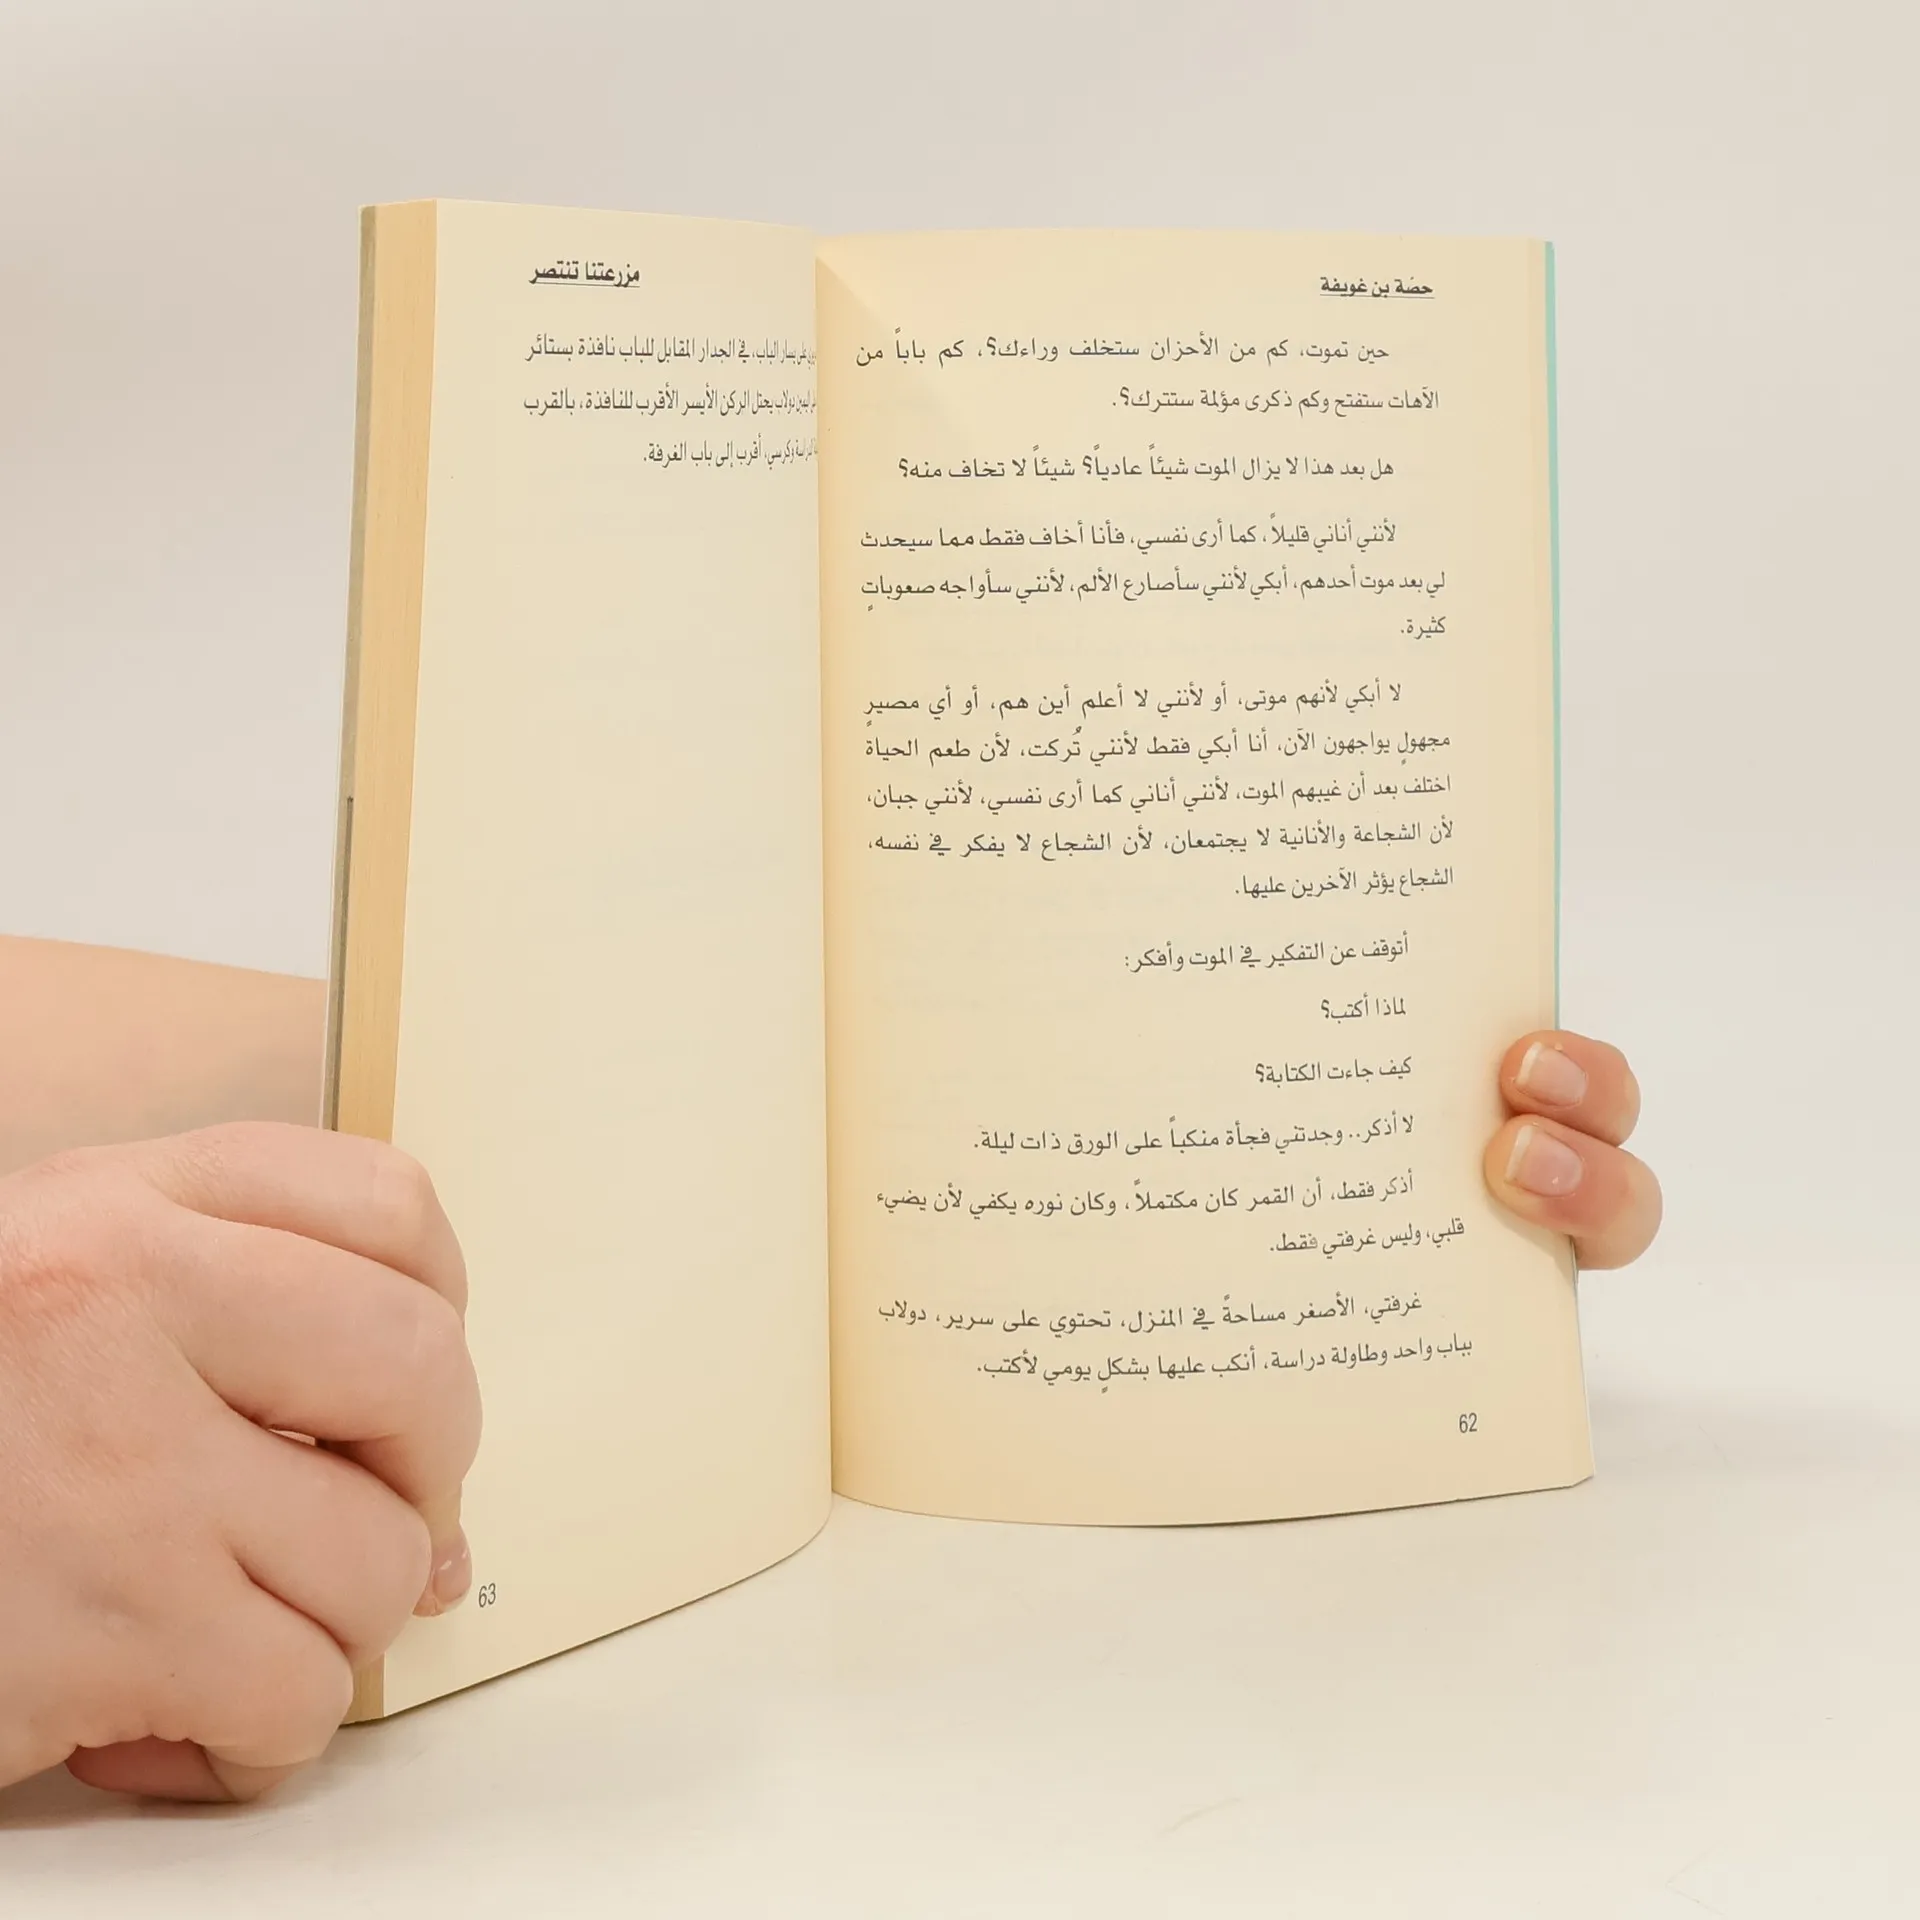 حصّة بن غويفة
حين تموت، كم من الأحزان ستخلف وراءك؟، كم باباً من
الآهات ستفتح وكم ذكرى مؤلمة ستترك؟.
هل بعد هذا لا يزال الموت شيئاً عادياً؟ شيئاً لا تخاف منه؟
لأنني أناني قليلاً، كما أرى نفسي، فأنا أخاف فقط مما سيحدث
لي بعد موت أحدهم، أبكي لأنني سأصارع الألم، لأنني سأواجه صعوباتٍ
كثيرة.
لا أبكي لأنهم موتى، أو لأنني لا أعلم أين هم، أو أي مصيرٍ
مجهولٍ يواجهون الآن، أنا أبكي فقط لأنني تُركت، لأن طعم الحياة
اختلف بعد أن غيبهم الموت، لأنني أناني كما أرى نفسي، لأنني جبان،
لأن الشجاعة والأنانية لا يجتمعان، لأن الشجاع لا يفكر في نفسه،
الشجاع يؤثر الآخرين عليها.
أتوقف عن التفكير في الموت وأفكر:
لماذا أكتب؟
كيف جاءت الكتابة؟
لا أذكر.. وجدتني فجأة منكباً على الورق ذات ليلة.
أذكر فقط، أن القمر كان مكتملاً، وكان نوره يكفي لأن يضيء
قلبي، وليس غرفتي فقط.
غرفتي، الأصغر مساحةً في المنزل، تحتوي على سرير، دولاب
بباب واحد وطاولة دراسة، أنكب عليها بشكلٍ يومي لأكتب.
62
مزرعتنا تنتصر
على يسار الباب، في الجدار المقابل للباب نافذة بستائر
دولاب يحتل الركن الأيسر الأقرب للنافذة، بالقرب
وكرسي، أقرب إلى باب الغرفة.
63